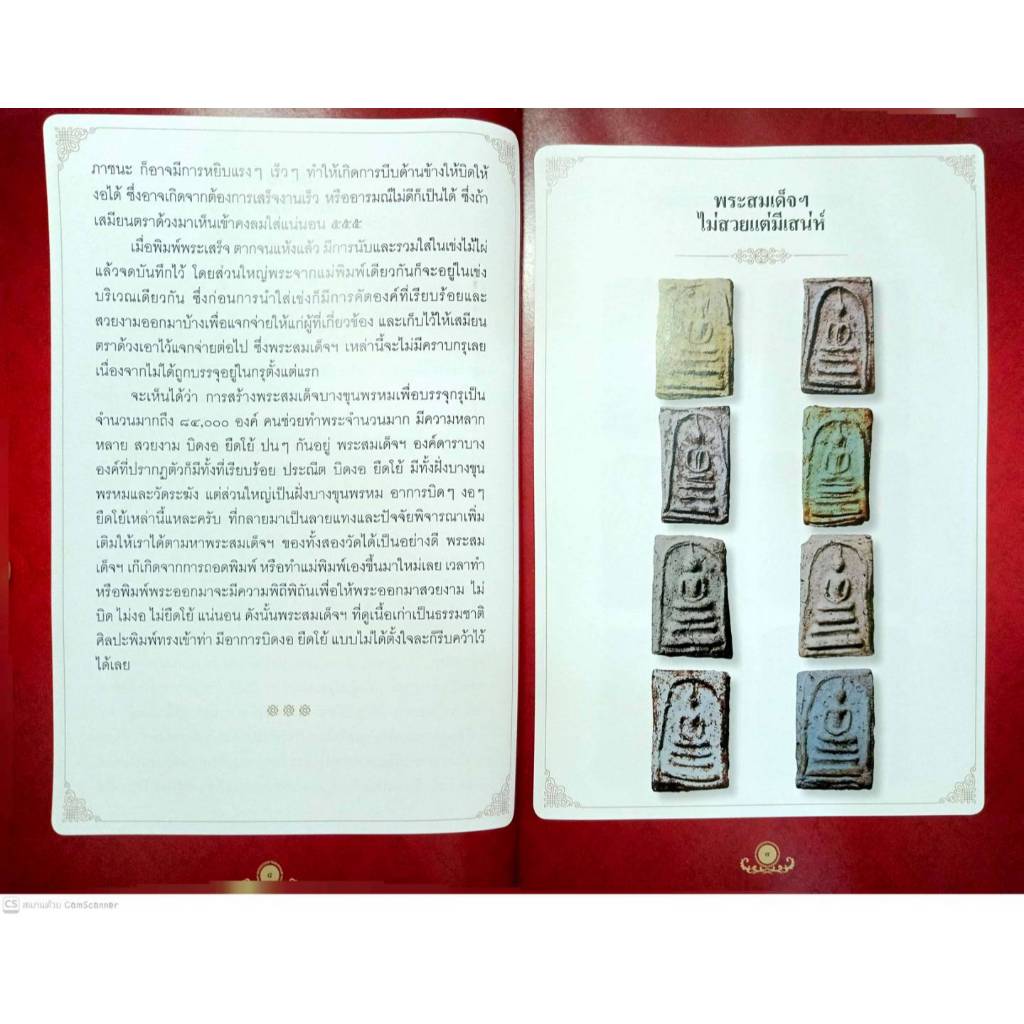 ภาชนะ ก็อาจมีการหยิบแรงๆ เร็วๆ ทำให้เกิดการบีบด้านข้างให้บิดให้
งอได้ ซึ่งอาจเกิดจากต้องการเสร็จงานเร็ว หรืออารมณ์ไม่ดีก็เป็นได้ ซึ่งถ้า
เสมียนตราด้วงมาเห็นเข้าคงลมใส่แน่นอน ๕๕๕
เมื่อพิมพ์พระเสร็จ ตากจนแห้งแล้ว มีการนับและรวมใส่ในเข่งไม้ไผ่
แล้วจดบันทึกไว้ โดยส่วนใหญ่พระจากแม่พิมพ์เดียวกันก็จะอยู่ในเข่ง
บริเวณเดียวกัน ซึ่งก่อนการนำใส่เข่งก็มีการคัดองค์ที่เรียบร้อยและ
สวยงามออกมาบ้างเพื่อแจกจ่ายให้แก่ผู้ที่เกี่ยวข้อง และเก็บไว้ให้เสมียน
ตราด้วงเอาไว้แจกจ่ายต่อไป ซึ่งพระสมเด็จฯ เหล่านี้จะไม่มีคราบกรุเลย
เนื่องจากไม่ได้ถูกบรรจุอยู่ในกรุตั้งแต่แรก
จะเห็นได้ว่า การสร้างพระสมเด็จบางขุนพรหมเพื่อบรรจุกรุเป็น
จำนวนมากถึง ๘๔,๐๐๐ องค์ คนช่วยทำพระจำนวนมาก มีความหลาก
หลาย สวยงาม บิดงอ ยืดโย้ ปนๆ กันอยู่ พระสมเด็จฯ องค์ดาราบาง
องค์ที่ปรากฏตัวก็มีทั้งที่เรียบร้อย ประณีต บิดงอ ยืดโย้ มีทั้งฝั่งบางขุน
พรหมและวัดระฆัง แต่ส่วนใหญ่เป็นฝั่งบางขุนพรหม อาการบิดๆ งอๆ
ยืดโย้เหล่านี้แหละครับ ที่กลายมาเป็นลายแทงและปัจจัยพิจารณาเพิ่ม
เติมให้เราได้ตามหาพระสมเด็จฯ ของทั้งสองวัดได้เป็นอย่างดี พระสม
เด็จฯ เก๊เกิดจากการถอดพิมพ์ หรือทำแม่พิมพ์เองขึ้นมาใหม่เลย เวลาทำ
หรือพิมพ์พระออกมาจะมีความพิถีพิถันเพื่อให้พระออกมาสวยงาม ไม่
บิด ไม่งอ ไม่ยืดโย้ แน่นอน ดังนั้นพระสมเด็จฯ ที่ดูเนื้อเก่าเป็นธรรมชาติ
ศิลปะพิมพ์ทรงเข้าท่า มีอาการบิดงอ ยืดโย้ แบบไม่ได้ตั้งใจละก็รีบคว้าไว้
ได้เลย
พระสมเด็จฯ
ไม่สวยแต่มีเสน่ห์
CS สแกนด้วย CamScanner